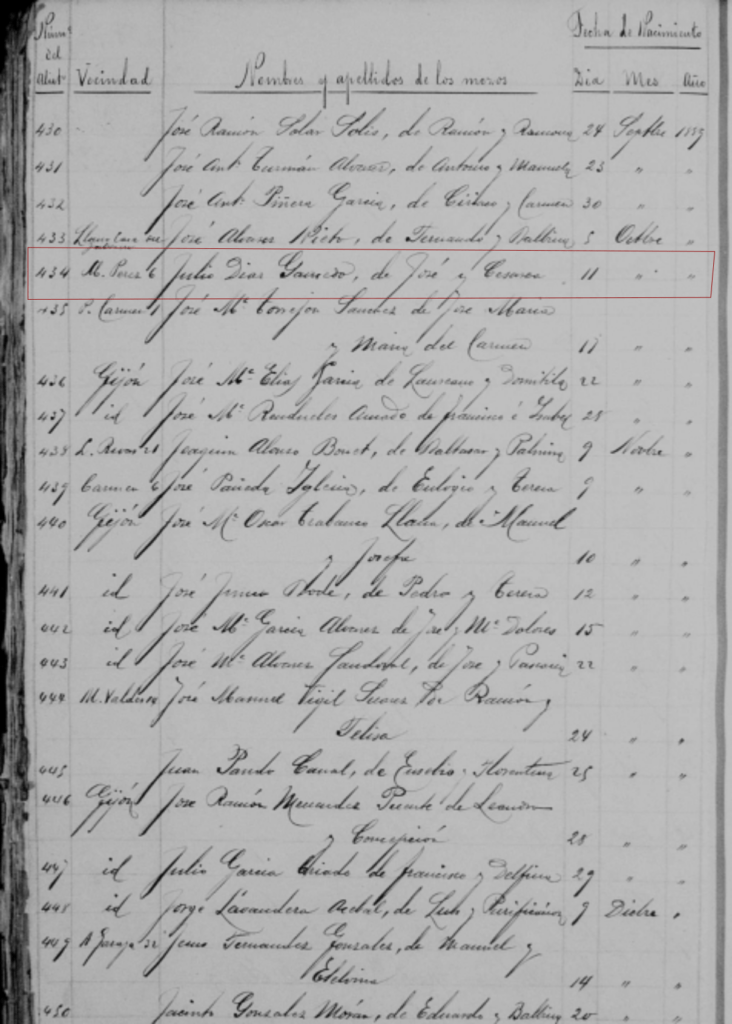 Fecha de Nacimiento
Núm. del Alist. Vecindad Nombres y apellidos de los mozos Dia Mes Año
430 José Ramón Solar Solís, de Ramón y Ramona 24 Septbre 1889
431 José Ant. Guzmán Alvarez, de Antonio y Manuela 23 " "
432 José Ant. Piñera Garcia, de Ciriaco y Carmen 30 " "
433 José Alvarez Nieto, de Fernando y Balbina 5 Octbre "
434 M. Perez 6 Julio Diaz, de José y Cesarea 11 " "
435 P. Carmen 1 José Mª Torrejon Sanchez de Jose Maria
y Maria del Carmen 17 " "
436 Gijón José Mª Elias Garcia de Laureano y Domitila 22 " "
437 id José Mª Rendueles Amado de francisco é Isabel 28 " "
438 Joaquin Alonso Bonet, de Baltasar y 9 Novbre "
439 Carmen 6 José Pañeda Iglesias, de Eulogio y Teresa 9 " "
440 Gijón José Mª Oscar Trabanco Llana, de Manuel
y Josefa 10 " "
441 id José, de Pedro y Teresa 12 " "
442 id José Mª Garcia Alvarez de Jose y Mª Dolores 15 " "
443 id José Mª Alvarez Sandoval, de Jose y 22 " "
444 M. Valdés José Manuel Vigil Suarez de Ramón y
Felisa 24 " "
445 Juan Pando Canal, de Eusebio y Florentina 25 " "
446 Gijón Jose Ramón Menendez de Leandro
y Concepción 28 " "
447 id Julio Garcia Criado de francisco y Delfina 29 " "
448 id Jorge Lavandera, de Luis y Purificación 9 Dicbre "
449 Jesus Fernandez Gonzalez, de Manuel y
Etelvina 14 " "
450 Jacinto Gonzalez Morán, de Eduardo y Balbina 20 " "